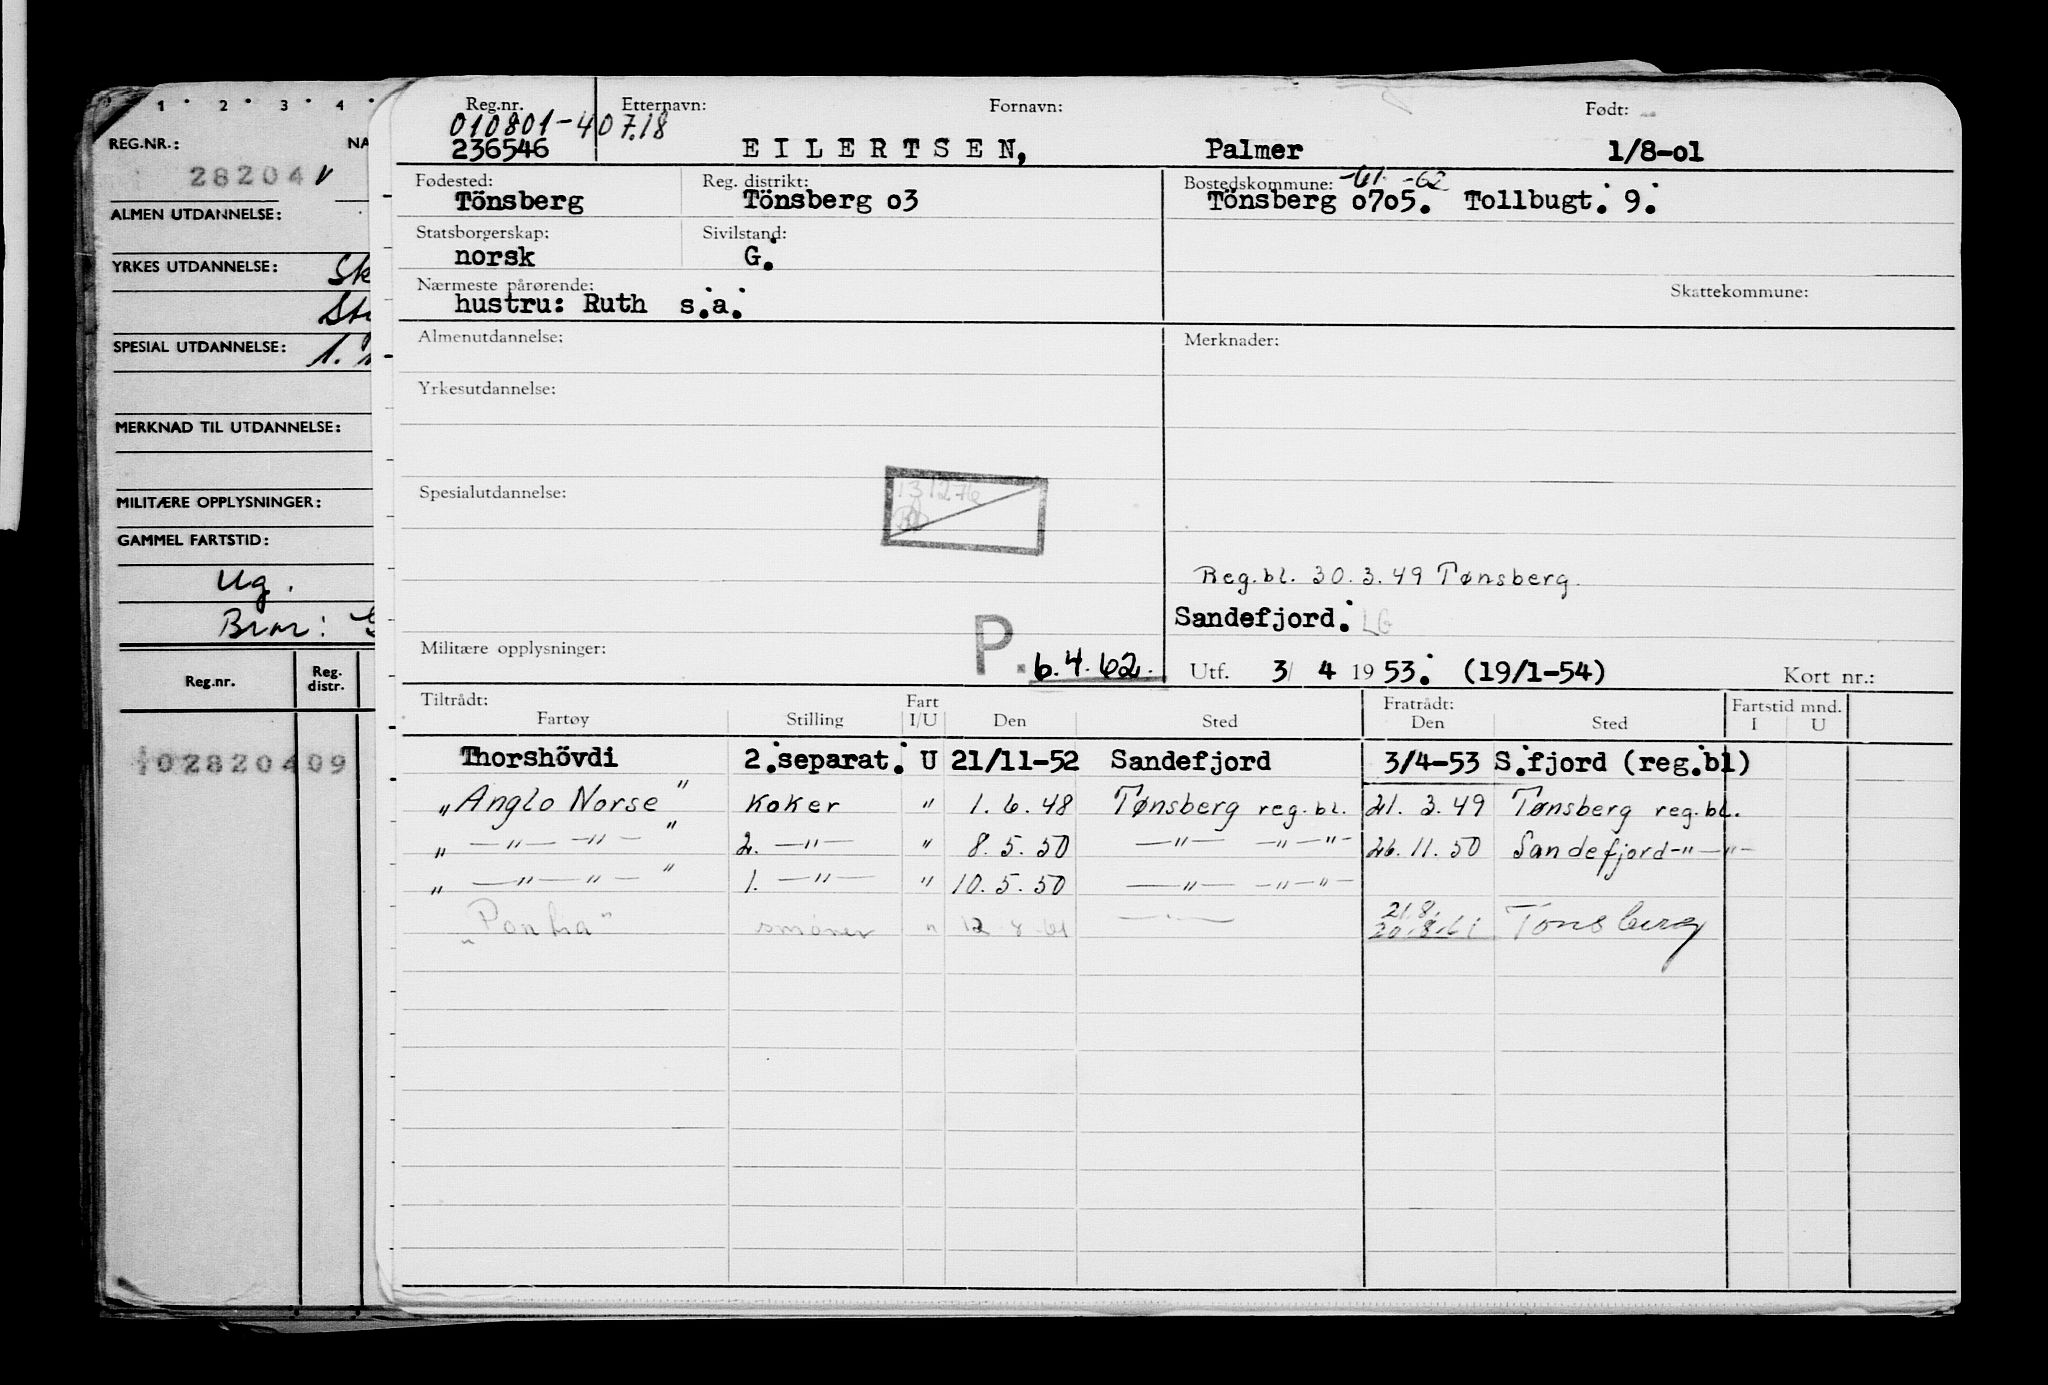 1 · 2 · 3 · 4 ·
REG.NR.: NA
28204
ALMEN UTDANNELSE:
YRKES UTDANNELSE: Sk
St
SPESIAL UTDANNELSE: 1.
MERKNAD TIL UTDANNELSE:
MILITÆRE OPPLYSNINGER:
GAMMEL FARTSTID:
Ug.
Bror:
Reg.nr. Reg. distr.
102820409
Reg.nr. Etternavn: Fornavn: Født:
010801-40718
236546 EILERTSEN, Palmer 1/8-01
Fødested: Reg. distrikt: Bostedskommune: -61. -62
Tönsberg Tönsberg 03 Tönsberg 0705. Tollbugt. 9.
Statsborgerskap: Sivilstand:
norsk G.
Nærmeste pårørende: Skattekommune:
hustru: Ruth s.a.
Almenutdannelse: Merknader:
Yrkesutdannelse:
Spesialutdannelse: 131276
Reg.bl. 30.3.49 Tønsberg.
Sandefjord. LG
Militære opplysninger: P. 6.4.62. Utf. 3/ 4 1953. (19/1-54) Kort nr.:
Tiltrådt: Fart Fratrådt: Fartstid mnd.
Fartøy Stilling I/U Den Sted Den Sted I U
Thorshövdi 2.separat. U 21/11-52 Sandefjord 3/4-53 S.fjord (reg.bl)
"Anglo Norse" Koker " 1.6.48 Tønsberg reg.bl. 21.3.49 Tønsberg reg.bl.
" —"— —"— " 2. —"— " 8.5.50 —"— —"—"— 26.11.50 Sandefjord —"—"—
" —"— "— " 1. —"— " 10.5.50 —"— —"—"—
21.8.
smører " 12 8 61 —"— 20.8.61 Tønsberg